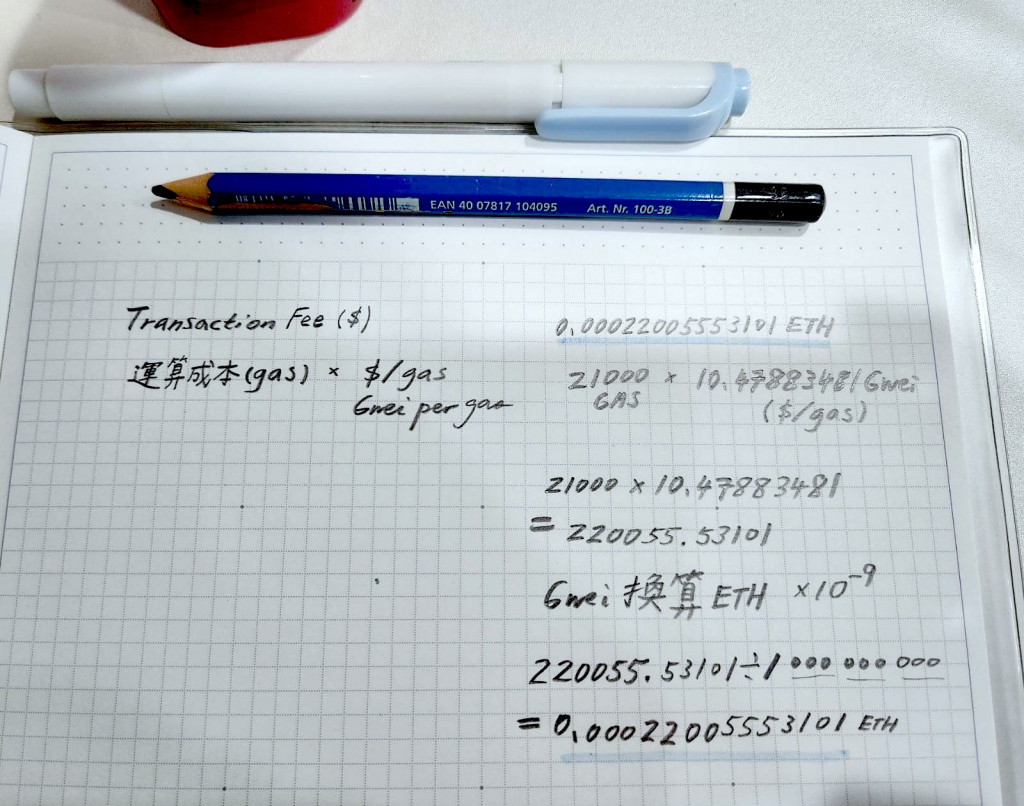 EAN 40 07817 104095 Art. Nr. 100-3B
Transaction Fee ($)
運算成本(gas) × $/gas
Gwei per gas
0.00022005553101 ETH
21000 × 10.47883481 Gwei
GAS ($/gas)
21000 × 10.47883481
= 220055.53101
Gwei 換算 ETH ×10⁻⁹
220055.53101÷1 000 000 000
= 0.00022005553101 ETH